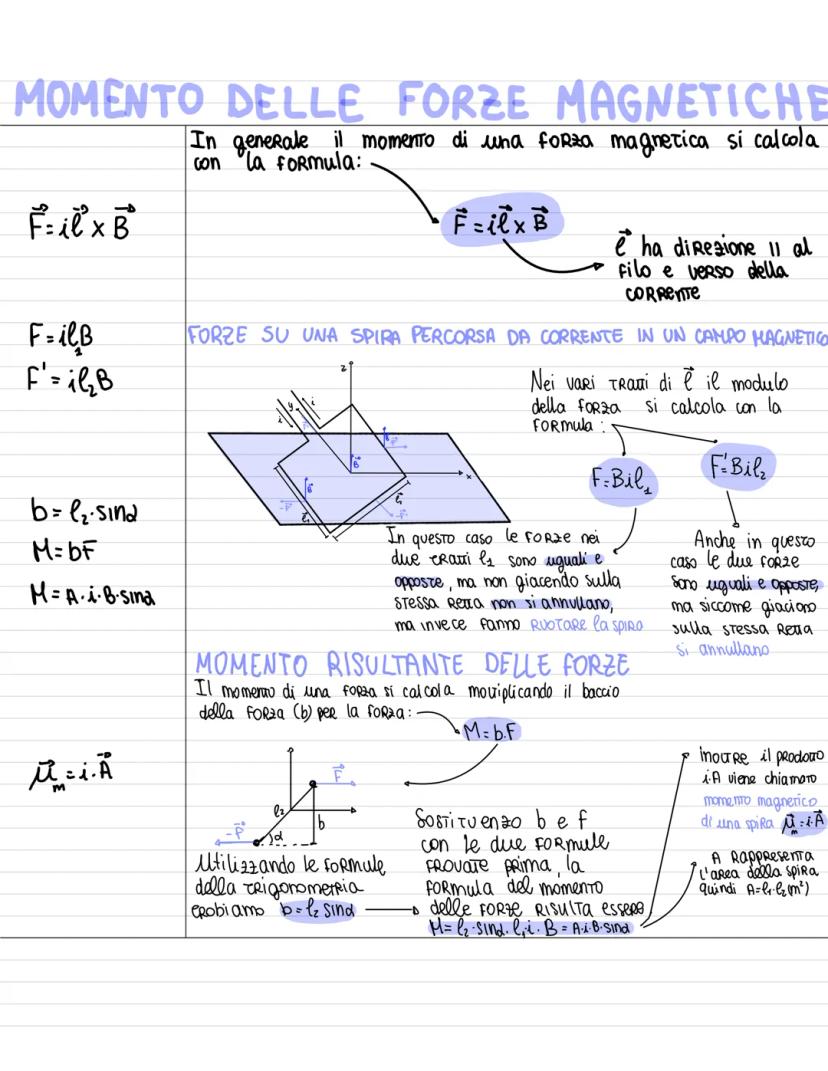 MOMENTO DELLE FORZE MAGNETICHE
In generale il momento di una forza magnetica si calcola
con la formula:
F = il x B
F = il x B
l ha direzione || al
filo e verso della
corrente
F = il₁B
F' = il₂B
FORZE SU UNA SPIRA PERCORSA DA CORRENTE IN UN CAMPO MAGNETICO
Nei vari tratti di l il modulo
della forza si calcola con la
formula:
F=Bil₁
F'=Bil₂
z
y
i
i
x
B
B
B
l₁
l₁
-F
-F
In questo caso le forze nei
due tratti l₁ sono uguali e
opposte, ma non giacendo sulla
stessa retta non si annullano,
ma invece fanno RUOTARE la spira
Anche in questo
caso le due forze
sono uguali e opposte,
ma siccome giaciono
sulla stessa retta
si annullano
b = l₂·sinα
M = bF
M = A·i·B·sinα
MOMENTO RISULTANTE DELLE FORZE
Il momento di una forza si calcola motiplicando il baccio
della forza (b) per la forza:
M=b.F
μₘ = i·A
F
l₂
b
-F
α
Utilizzando le formule
della trigonometria
trobiamo b=l₂ sinα
Sostituenzo b e f
con le due formule
trovate prima, la
formula del momento
delle forze risulta essere
M= l₂·sinα·l₁·i·B = A·i·B·sinα
inoltre il prodotto
i·A viene chiamato
momento magnetico
di una spira μₘ=i·A
A rappresenta
l'area della spira
quindi A=l₁·l₂(m²)